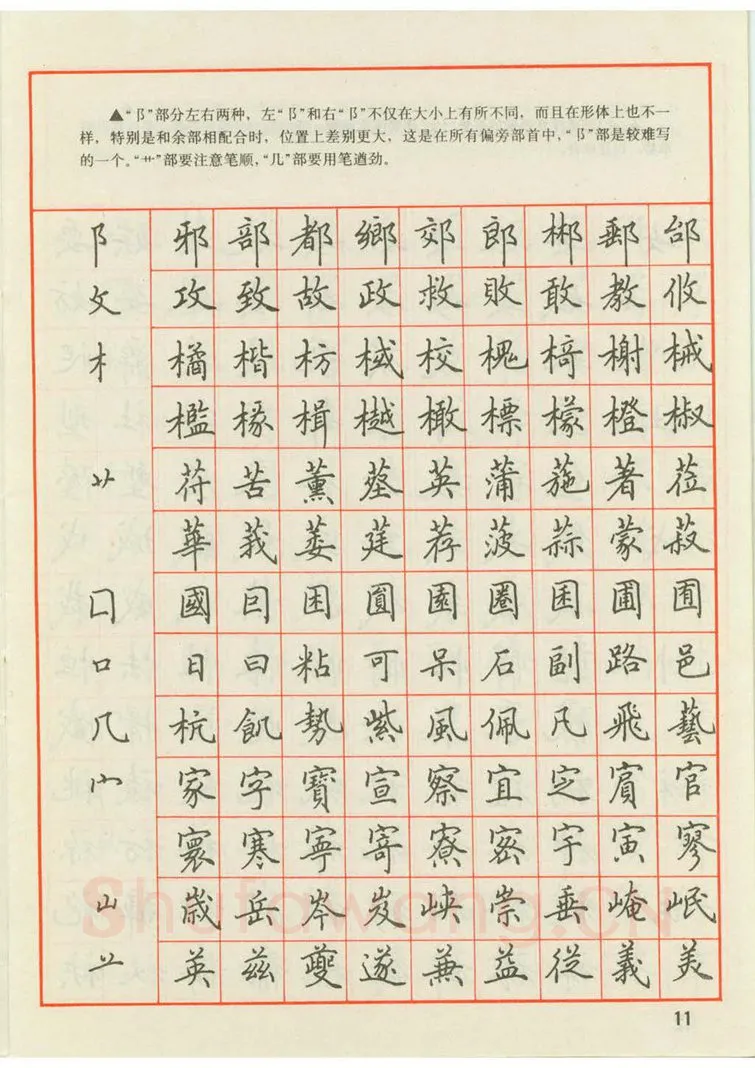 ▲“阝”部分左右两种，左“阝”和右“阝”不仅在大小上有所不同，而且在形体上也不一
样，特别是和余部相配合时，位置上差别更大，这是在所有偏旁部首中，“阝”部是较难写
的一个。“艹”部要注意笔顺，“几”部要用笔遒劲。
阝 邪 部 都 鄉 郊 郎 郴 郵 邰
攵 攻 致 故 政 救 敗 敢 教 攸
木 橘 楷 枋 棫 校 槐 椅 榭 械
檻 椽 楫 樾 橄 標 檬 橙 椒
艹 苻 苦 薰 英 蒲 葹 著 莅
華 莪 萎 莛 荐 菠 蒜 蒙 菽
囗 國 囙 困 圓 園 圈 囷 圃 囿
口 日 曰 粘 可 呆 石 副 路 邑
几 杭 飢 勢 紫 風 佩 凡 飛 藝
宀 家 字 寶 宣 察 宜 定 賓 官
寰 寒 寧 寄 寮 密 宇 寅 寥
山 歲 岳 岑 岌 峽 崇 垂 崦 岷
䒑 英 兹 夔 遂 兼 益 從 義 美
Shufawang.CN
11